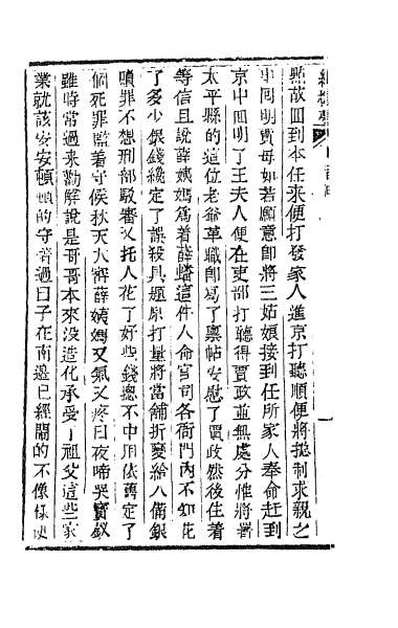 點故回到本任来便打發家人進京打聽順便將總制求親之
事回明賈母如若願意即將三姑娘接到任所家人奉命赶到
京中回明了王夫人便在吏部打聽得賈政並無處分惟將署
太平縣的這位老爺革職即寫了禀帖安慰了賈政然後住着
等信且說薛姨媽爲着薛蟠這件人命官司各衙門內不知花
了多少銀錢纔定了誤殺具題原打量將當舖折變給人備銀
贖罪不想刑部駁審又托人花了好些錢總不中用依舊定了
個死罪監着守候秋天大審薛姨媽又氣又疼日夜啼哭寳釵
雖時常過来勸解說是哥哥本來没造化承受了祖父這些家
業就該安安頓頓的守着過日子在南邊已經閙的不像樣便